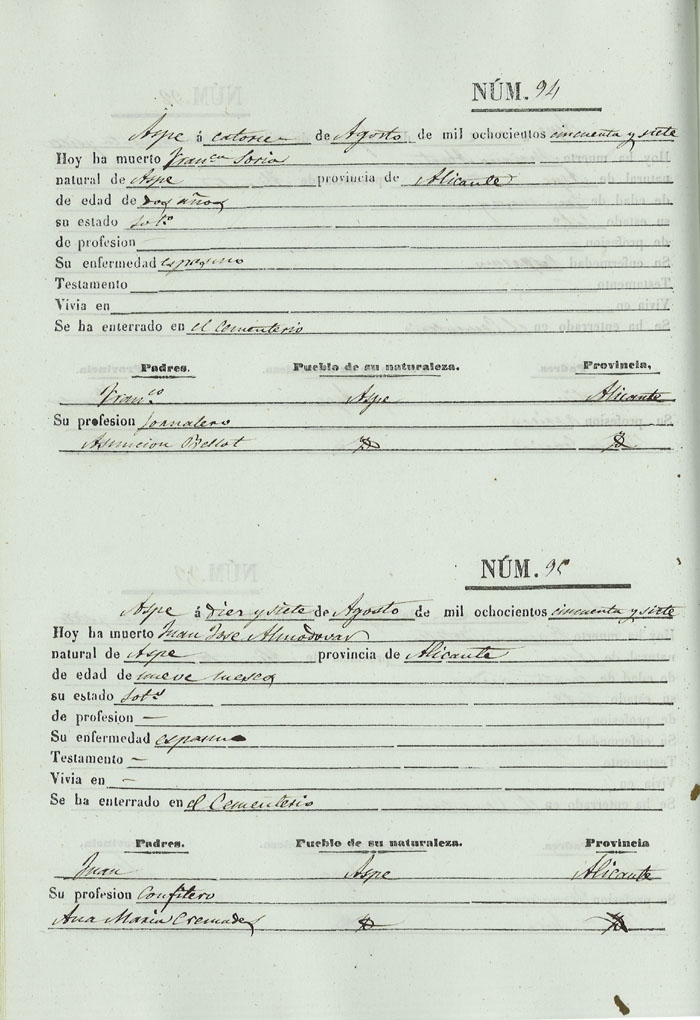 NÚM. 94
Aspe á catorce de Agosto de mil ochocientos cincuenta y siete
Hoy ha muerto Fran.ca Soria
natural de Aspe provincia de Alicante
de edad de dos años
su estado
de profesion
Su enfermedad espasmo
Testamento
Vivia en
Se ha enterrado en el Cementerio
Padres. Pueblo de su naturaleza. Provincia,
Fran.co Aspe Alicante
Su profesion Jornalero
Asuncion Bellot
NÚM. 95
Aspe á diez y siete de Agosto de mil ochocientos cincuenta y siete
Hoy ha muerto Juan José Almodovar
natural de Aspe provincia de Alicante
de edad de nueve meses
su estado
de profesion —
Su enfermedad espasmo
Testamento —
Vivia en —
Se ha enterrado en el Cementerio
Padres. Pueblo de su naturaleza. Provincia
Juan Aspe Alicante
Su profesion Confitero
Ana Maria Cremades